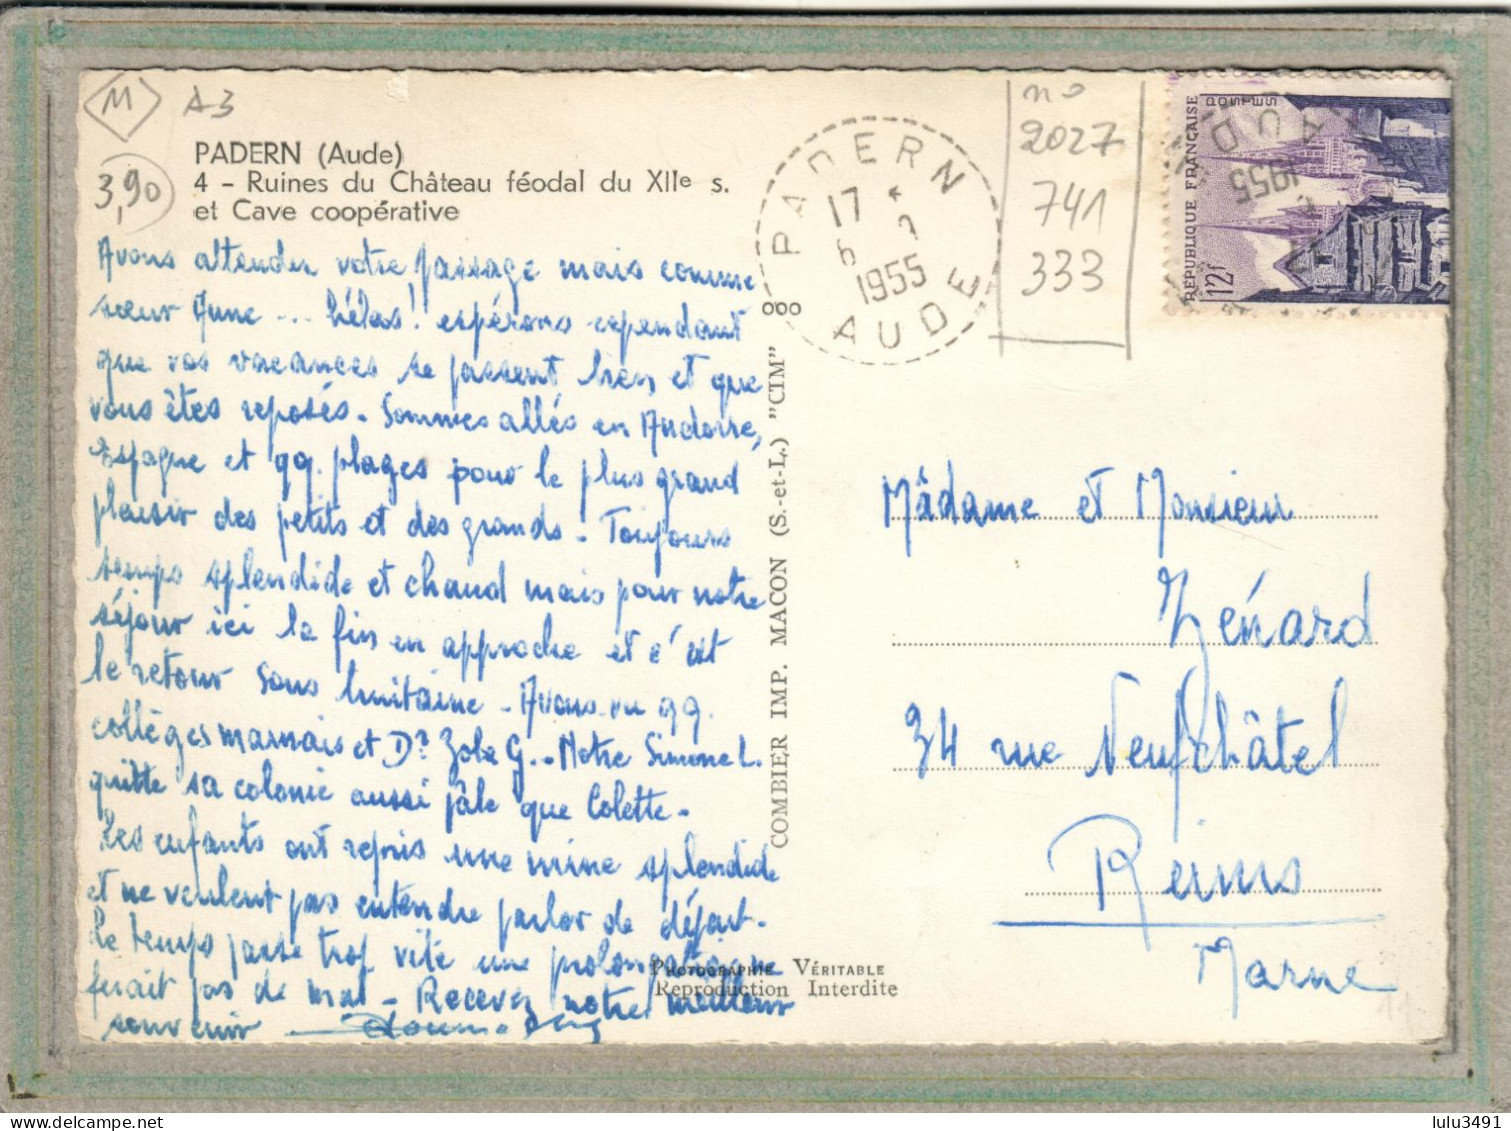 M
A3
3,90
PADERN (Aude)
4 - Ruines du Château féodal du XIIe s.
et Cave coopérative
Avons attendu votre passage mais comme
sœur Anne ... hélas! espérons cependant
que vos vacances se passent bien et que
vous êtes reposés - Sommes allés en Andorre,
Espagne et qq. plages pour le plus grand
plaisir des petits et des grands - Toujours
temps splendide et chaud mais pour notre
séjour ici la fin en approche et c'est
le retour sous huitaine - Avons vu qq.
collèges marnais et Dr G. - Notre Simone L.
quitte sa colonie aussi pâle que Colette -
Les enfants ont repris une mine splendide
et ne veulent pas entendre parler de départ -
Le temps passe trop vite une prolongation ne
ferait pas de mal - Recevez notre meilleur
souvenir
PHOTOGRAPHIE VÉRITABLE
Reproduction Interdite
COMBIER IMP. MACON (S.-et-L.) "CIM"
ooo
PADERN
17
6
1955
AUDE
no
2027
741
333
RÉPUBLIQUE FRANÇAISE
POSTES
12f
AUD
1955
Mâdame et Monsieur
Zénard
34 rue Neufchâtel
Reims
Marne
lulu3491